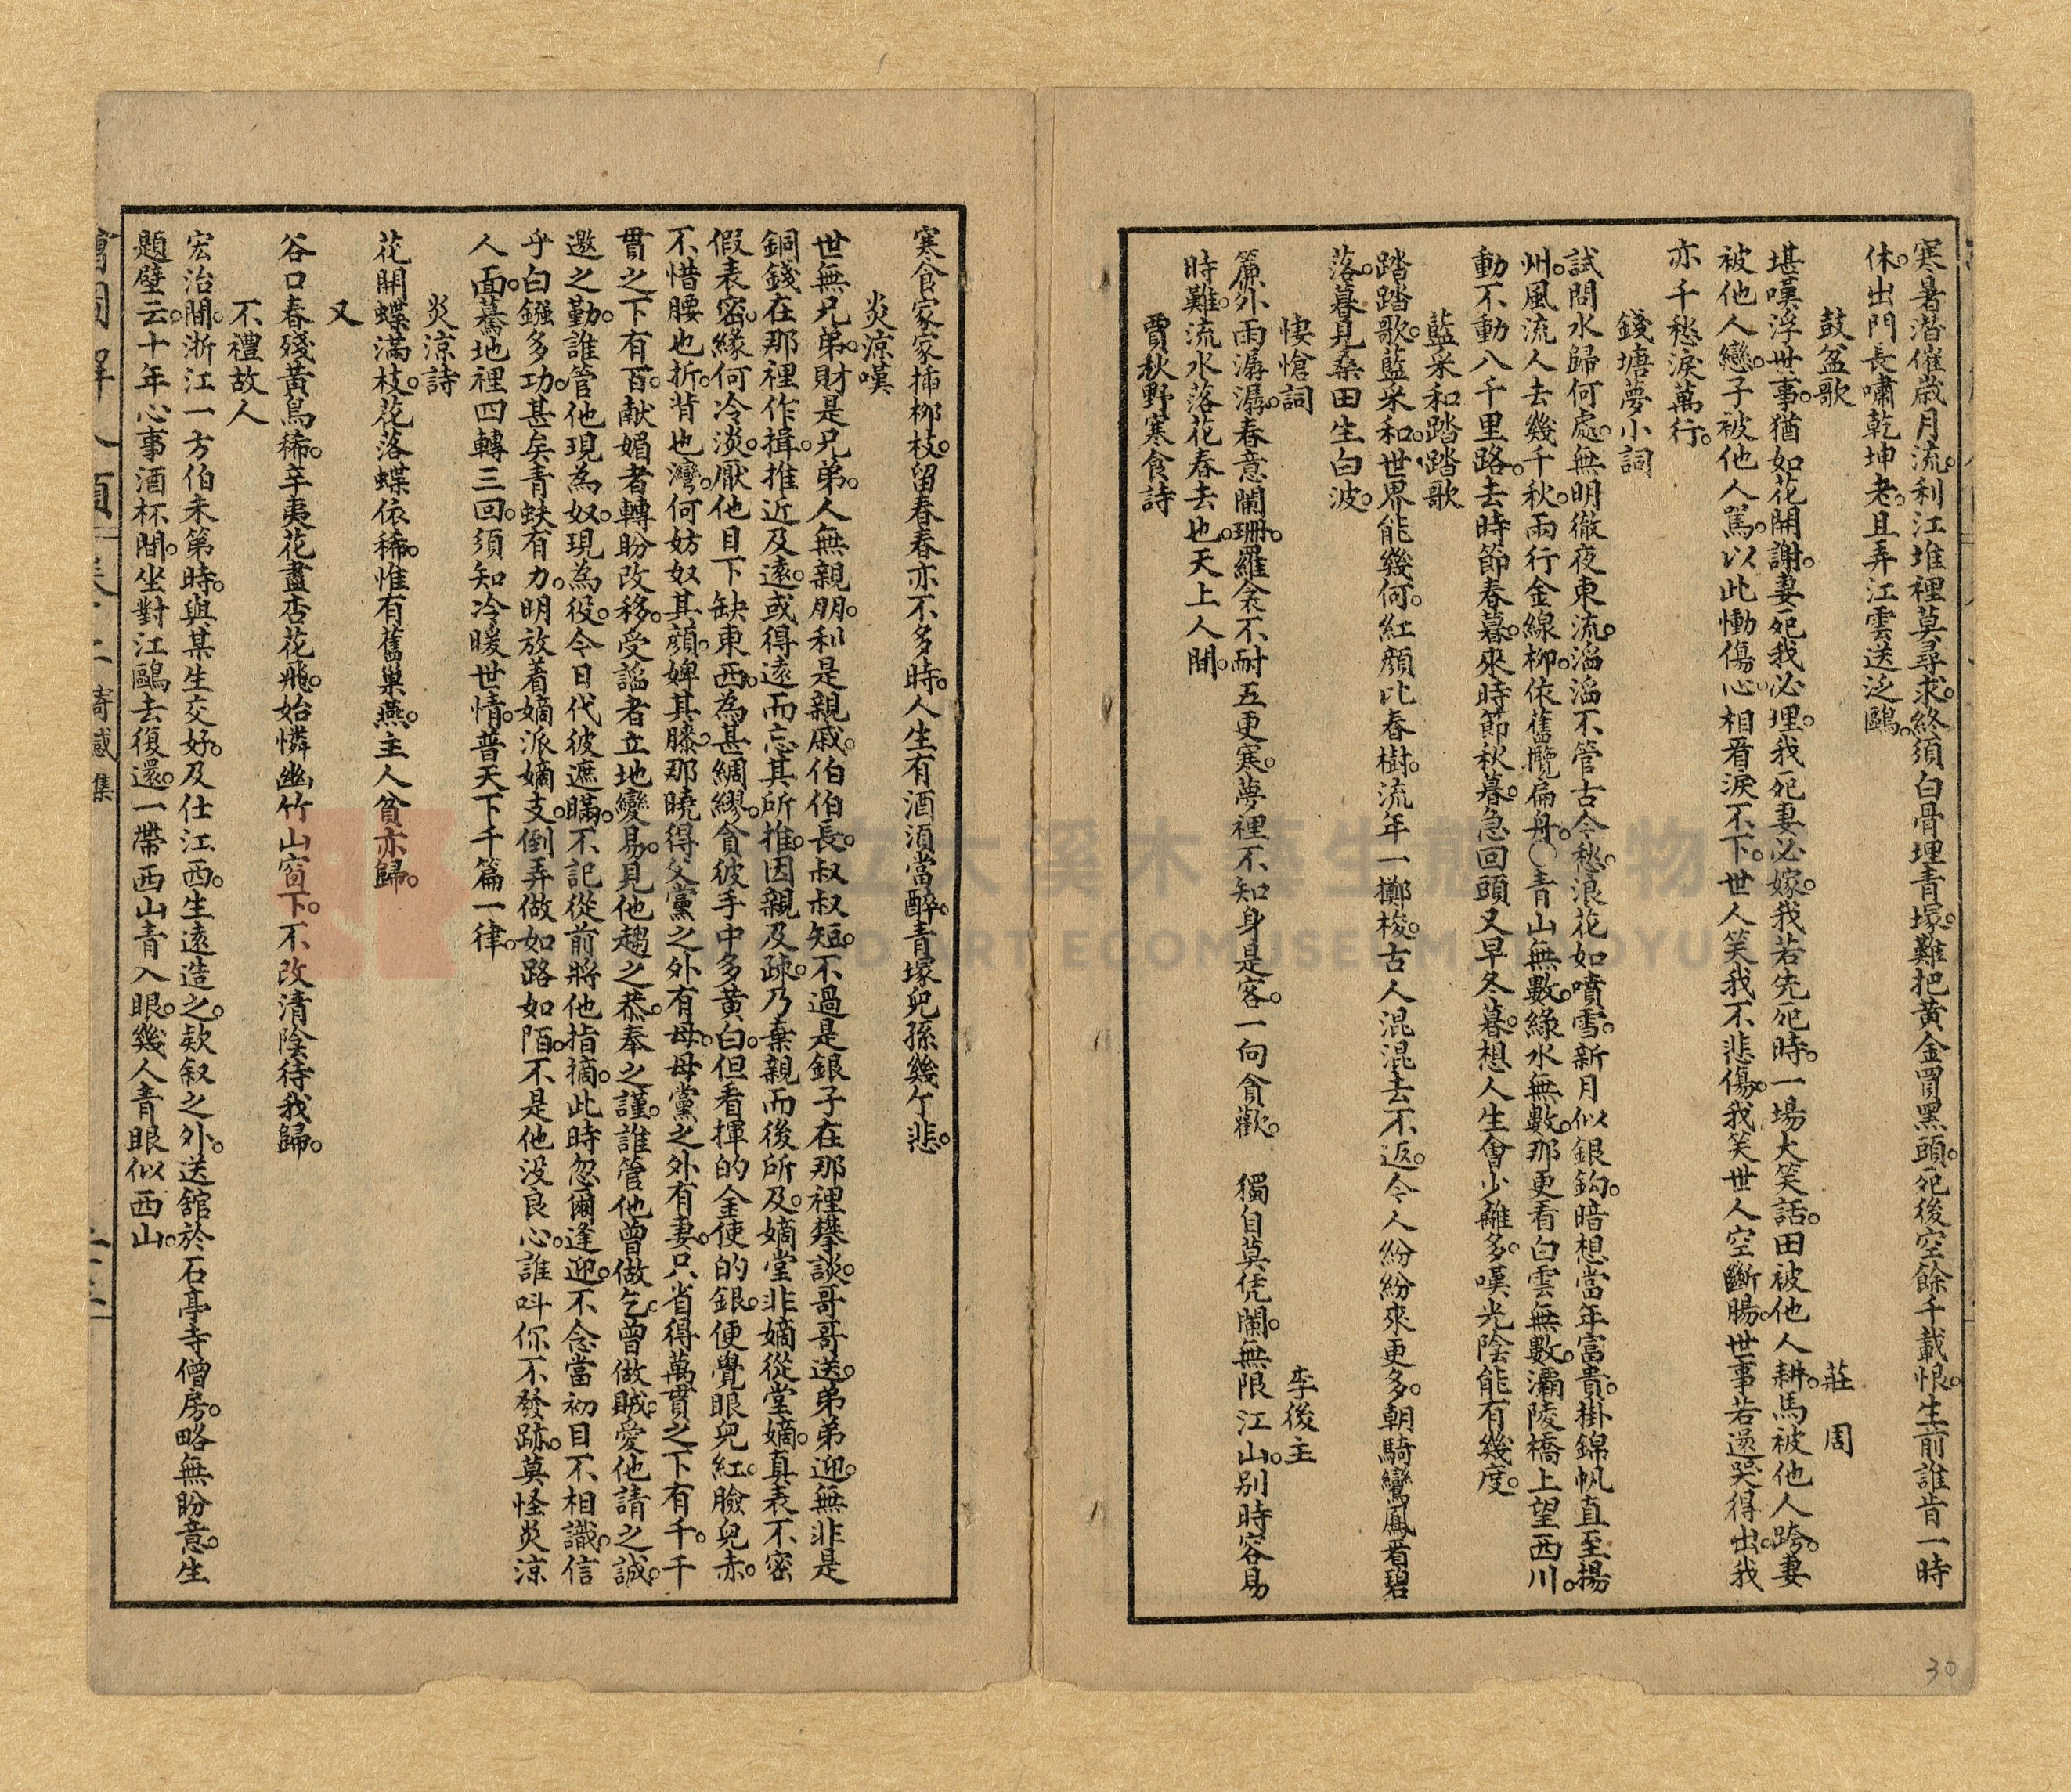 寒暑潛催歲月流。利江堆裡莫尋求。終須白骨埋青塚。難把黃金買黑頭。死後空餘千載恨。生前誰肯一時
休。出門長嘯乾坤老。且弄江雲送泛鷗。
鼓盆歌 莊周
堪嘆浮世事。猶如花開謝。妻死我必埋。我死妻必嫁。我若先死時。一場大笑話。田被他人耕。馬被他人跨。妻
被他人戀。子被他人罵。以此慟傷心。相看淚不下。世人笑我不悲傷。我笑世人空斷腸。世事若還哭得出。我
亦千愁淚萬行。
錢塘夢小詞
試問水歸何處。無明徹夜東流。滔滔不管古今愁。浪花如噴雪。新月似銀鈎。暗想當年富貴。掛錦帆直至揚
州。風流人去幾千秋。兩行金線柳。依舊攬扁舟。○青山無數。綠水無數。那更看白雲無數。灞陵橋上望西川。
動不動八千里路。去時節春暮。來時節秋暮。急回頭又早冬暮。想人生會少離多。嘆光陰能有幾度。
藍采和踏踏歌
踏踏歌。藍采和。世界能幾何。紅顏比春樹。流年一擲梭。古人混混去不返。今人紛紛來更多。朝騎鸞鳳看碧
落。暮見桑田生白波。
悽愴詞 李後主
簾外雨潺潺。春意闌珊。羅衾不耐五更寒。夢裡不知身是客。一向貪歡。 獨自莫凭闌。無限江山。別時容易
時難。流水落花春去也。天上人間。
賈秋野寒食詩
寒食家家插柳枝。留春春亦不多時。人生有酒須當醉。青塚兒孫幾个悲。
炎涼嘆
世無兄弟。財是兄弟。人無親朋。利是親戚。伯伯長。叔叔短。不過是銀子在那裡攀談。哥哥送。弟弟迎。無非是
銅錢在那裡作揖。推近及遠。或得遠而忘其所推。因親及疎。乃棄親而後所及。嫡堂非嫡。從堂嫡。真表不密
假表密。緣何冷淡。厭他目下缺東西。為甚綢繆。貪彼手中多黃白。但看揮的金。使的銀。便覺眼兒紅。臉兒赤。
不惜腰也折。背也灣。何妨奴其顏。婢其膝。那曉得父黨之外有母。母黨之外有妻。只省得萬貫之下有千。千
貫之下有百。献媚者轉盼改移。受謟者立地變易。見他趨之恭。奉之謹。誰管他曾做乞。曾做賊。愛他請之誠。
邀之勤。誰管他現為奴。現為役。今日代彼遮瞞。不記從前將他指摘。此時忽爾逢迎。不念當初目不相識。信
乎白鏹多功。甚矣青蚨有力。明放着嫡派嫡支。倒弄做如路如陌。不是他没良心。誰呌你不發跡。莫怪炎涼
人面。驀地裡四轉三回。須知冷暖世情。普天下千篇一律。
炎涼詩
花開蝶滿枝。花落蝶依稀。惟有舊巢燕。主人貧亦歸。
又
谷口春殘黃鳥稀。辛夷花盡杏花飛。始憐幽竹山窗下。不改清陰待我歸。
不禮故人
宏治間。浙江一方伯未第時。與某生交好。及仕江西。生遠造之。欵叙之外。送舘於石亭寺僧房。略無盼意。生
題壁云。十年心事酒杯間。坐對江鷗去復還。一帶西山青入眼。幾人青眼似西山。
寄感集
30